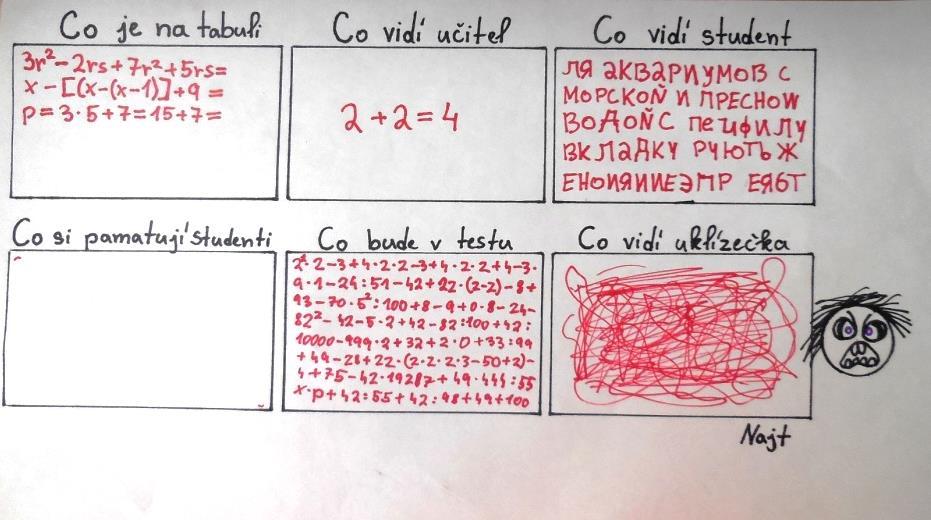 Co je na tabuli
3r²-2rs+7r²+5rs=
x-[(x-(x-1)]+9=
p=3·5+7=15+7=
Co vidí učitel
2+2=4
Co vidí student
ЛЯ АКВАРИУМОВ С
МОРСКОЙ И ПРЕСНОW
ВОДОЙ С ПЕЧФИЛУ
ВКЛАДКУ РУЮТЬ Ж
ЕНОИЯИИЕЭМР ЕЯБТ
Co si pamatují studenti
Co bude v testu
2²·2-3+4·2·2-3+4·2·2+4-3·
9·1-24:51-42+22·(2-2)-8+
93-70·5²:100+8-9+0·8-24-
82²-42-5·2+42-82:100+42:
10000-999·2+32+2·0+33:99
+49-28+22·(2·2·2·3-50+2)-
4+75-42·19287+49·444:55
x·p+42:55+42:98+49+100
Co vidí uklízečka
Najt